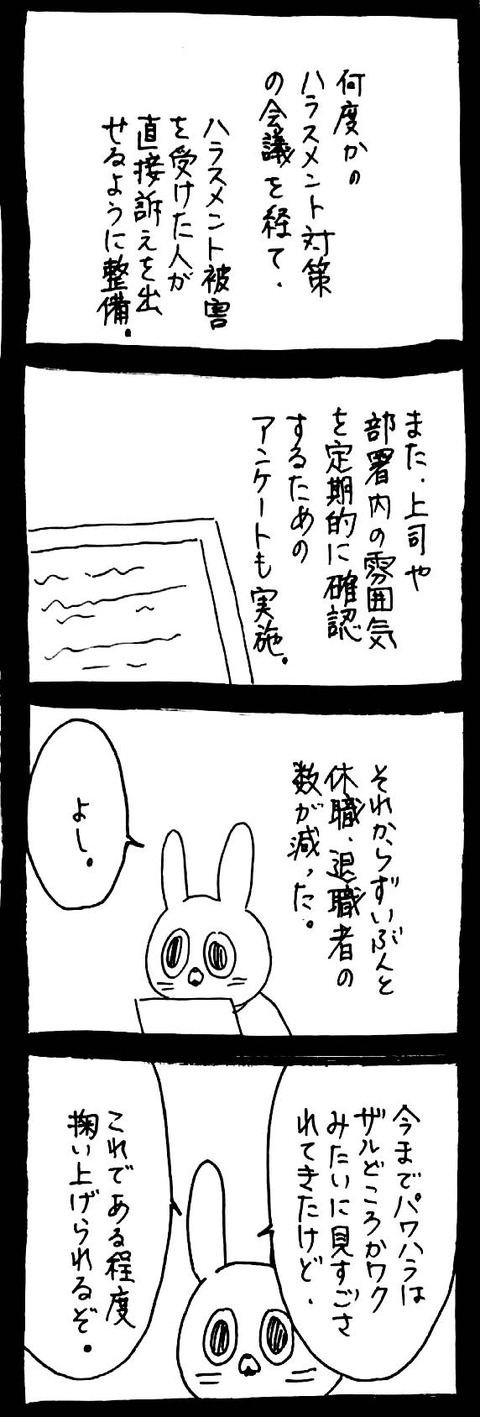 何度かの
ハラスメント対策
の会議を経て、
ハラスメント被害
を受けた人が
直接訴えを出
せるように整備。
また、上司や
部署内の雰囲気
を定期的に確認
するための
アンケートも実施。
それからずいぶんと
休職、退職者の
数が減った。
よし。
今までパワハラは
ザルどころかワク
みたいに見すごさ
れてきたけど、
これである程度
掬い上げられるぞ。